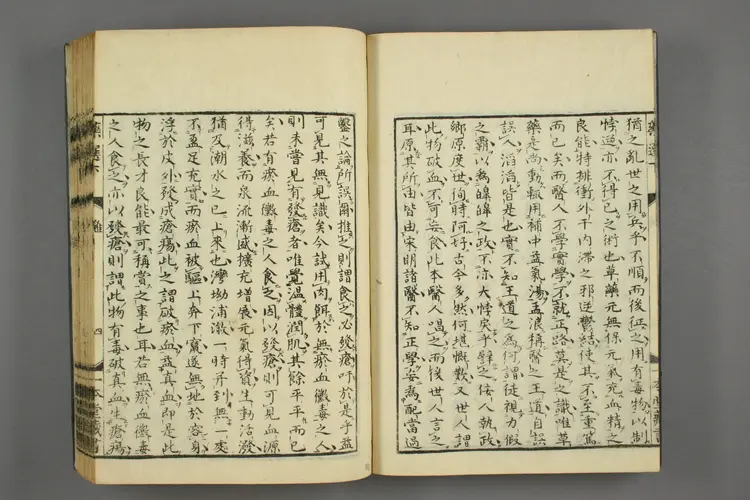 猶之亂世之用兵乎不順而後征之用有毒物以制
悖逆亦不得已之術也草藥元無保元氣充血精之
良能特排衝外干內滯之邪逆鬱結使其不至重篤
而已矣而醫人不學實學不就正路莫是之識唯草
藥是尚動輒用補中益氣湯孟浪稱醫之王道自誤
誤人滔滔皆是也實不知王道之為何謂徒視力假
之霸以為皞皞之政不亦大悖戾乎譬之佞人執政
鄉原度世徇時阿好古今多然何堪慨歎又世人謂
此物破血不可妄食此本醫人唱之而後世人言之
耳原其所由皆由宋明諸醫不知正學妄為配當過
鑿之論所誤爾推之則謂食之必發瘡吁於是乎益
可見其無見識矣今試用肉餌於無瘀血黴毒之人
則未嘗見有發瘡者唯覺溫體潤肌其餘平平而已
矣若有瘀血黴毒之人食之因以發瘡則可見血源
得滋養而泉流漸盛擴充增展元氣得資生動活潑
猶及潮水之已上來也灣坳浦漵一時并到無一處
不盈足充實而瘀血被驅上奔下竄遂無地於容身
浮於皮外發成瘡瘍此之謂破瘀血益真血即是此
物之長才良能最可稱賞之事也耳若無瘀血黴毒
之人食之亦以發瘡則謂此物有毒破真血生瘡瘍